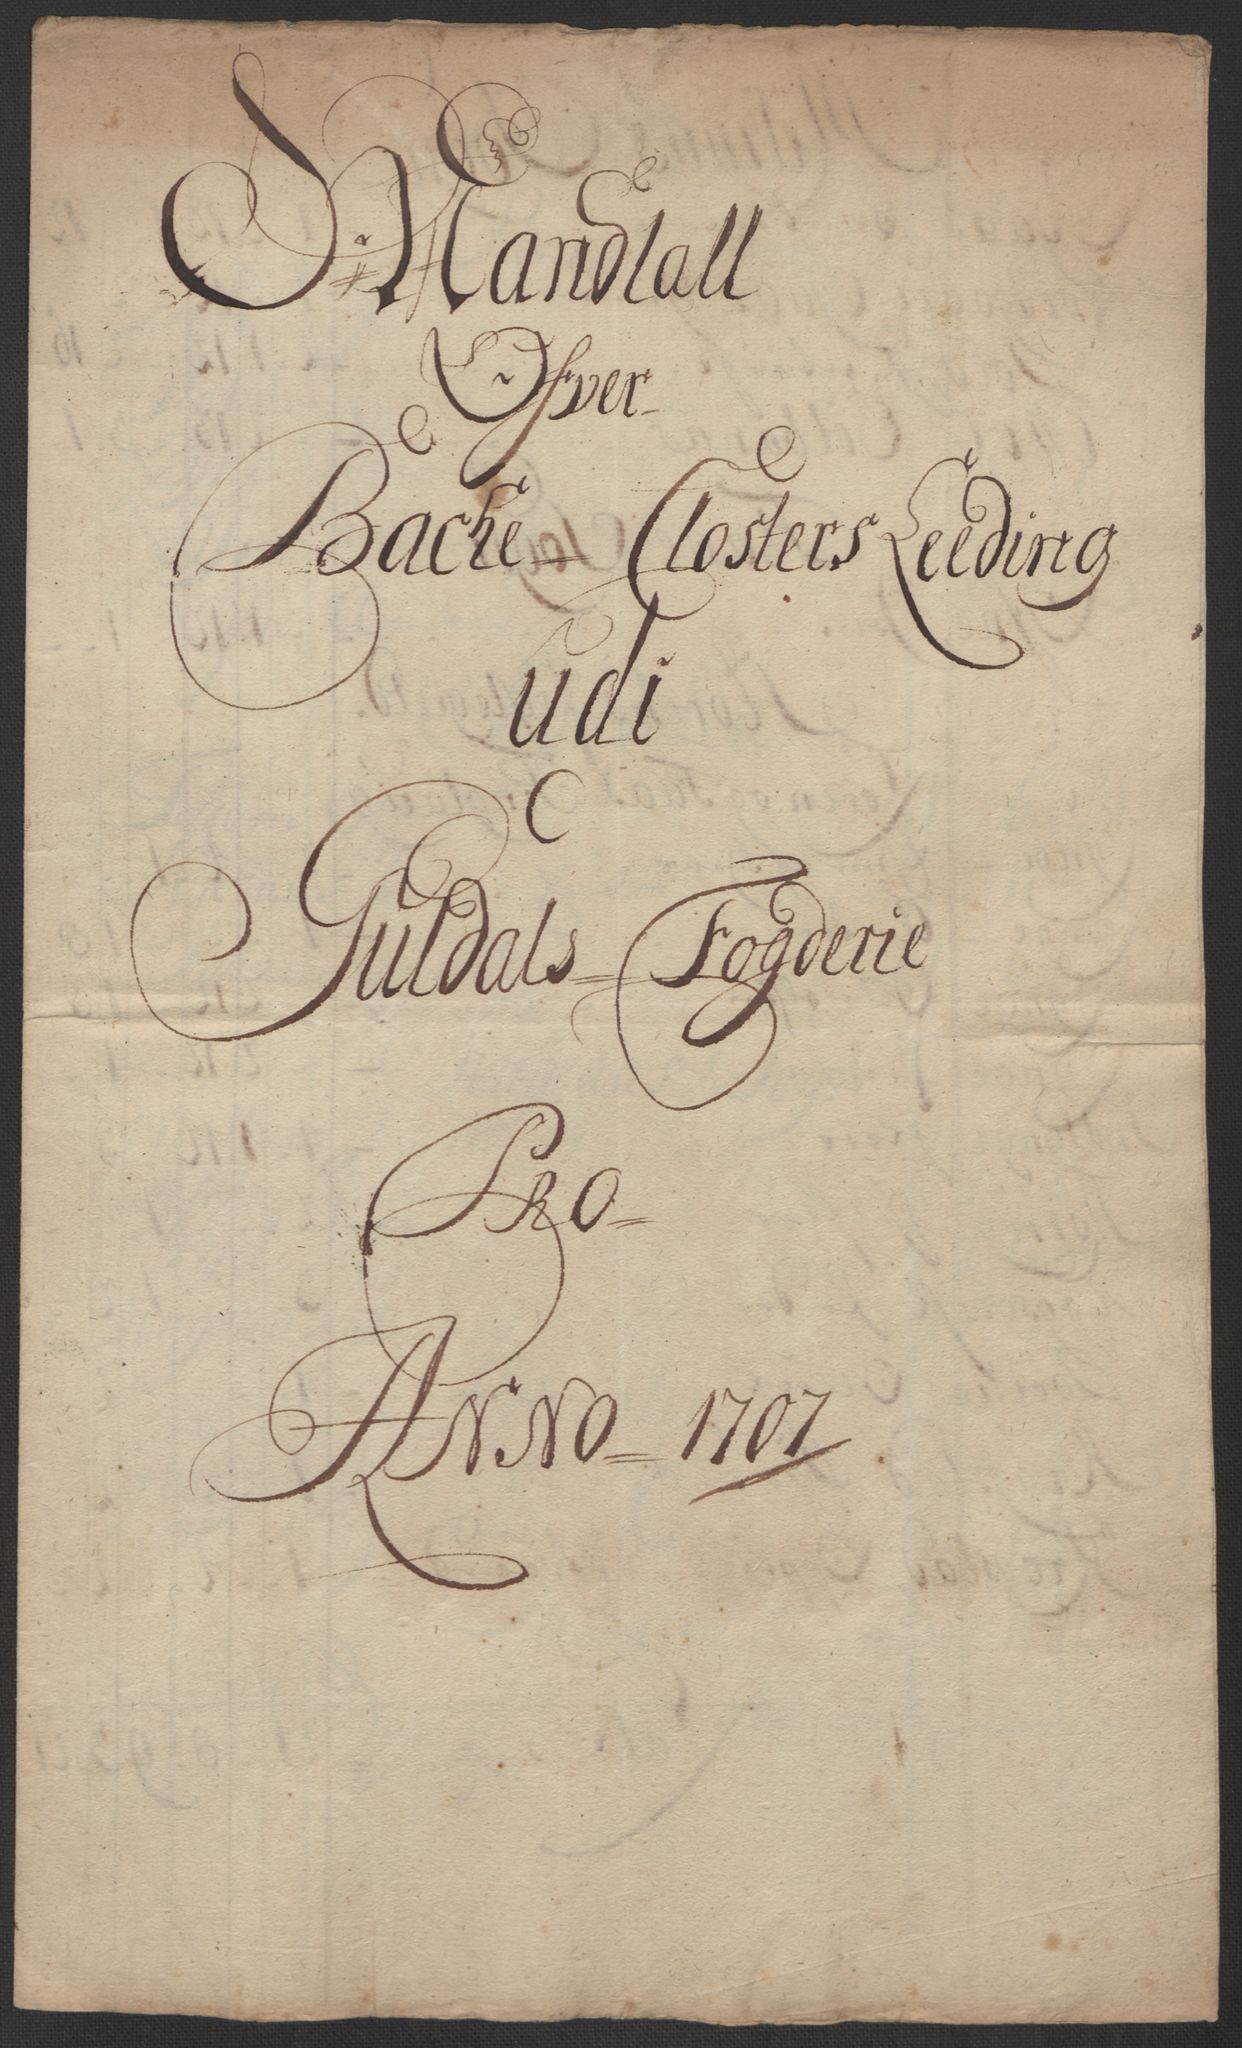 Mandtall
Ofver
Backe Closters Leeding
udi
Guldals Fogderie
Pro
Anno 1707